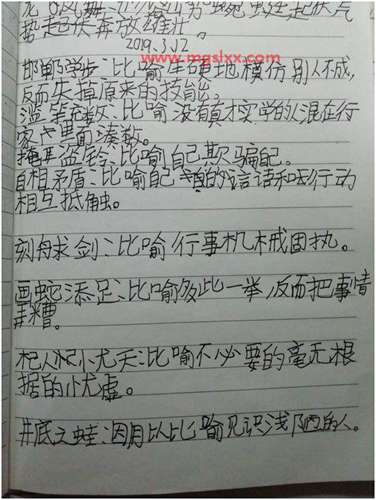 势起伏奔放雄壮。
2019.3.12
www.mgslxx.com
邯郸学步:比喻生硬地模仿别人不成,
反而失掉原来的技能。
滥竽充数:比喻没有真才实学的人混在行
家里面凑数。
掩耳盗铃:比喻自己欺骗自己。
自相矛盾:比喻自己的言语和行动
相互抵触。
刻舟求剑:比喻行事机械固执。
画蛇添足:比喻多此一举,反而把事情
弄糟。
杞人忧天:比喻不必要的毫无根
据的忧虑。
井底之蛙:用以比喻见识浅陋的人。